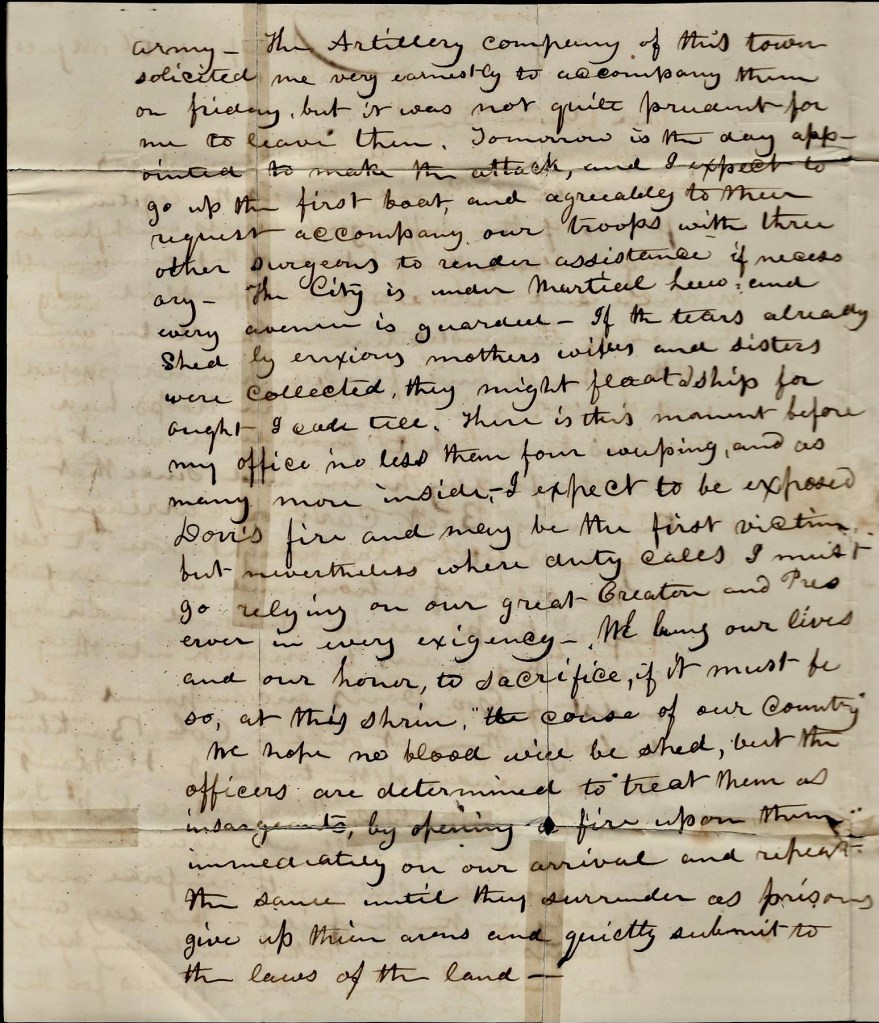 army – The Artillery company of this town
solicited me very earnestly to accompany them
on friday, but it was not quite prudent for
me to leave then. Tomorrow is the day app-
ointed to make the attack, and I expect to
go up the first boat, and agreeably to their
request accompany our troops with three
other surgeons to render assistance if necess
ary – The City is under Martial Law, and
every avenue is guarded – If the tears already
shed by anxious mothers wifes and sisters
were collected, they might float a ship for
aught I can tell. There is this moment before
my office no less than four weeping, and as
many more inside, – I expect to be exposed
Dorr's fire and may be the first victim,
but nevertheless where duty calls I must
go relying on our great Creator and Pres
erver in every exigency – We bring our lives
and our honor, to sacrifice, if it must be
so, at this shrine, "the cause of our Country"
We hope no blood will be shed, but the
officers are determined to treat them as
insurgents, by opening a fire upon them
immediately on our arrival and repeat
the same until they surrender as prisoners
give up their arms and quietly submit to
the laws of the land –